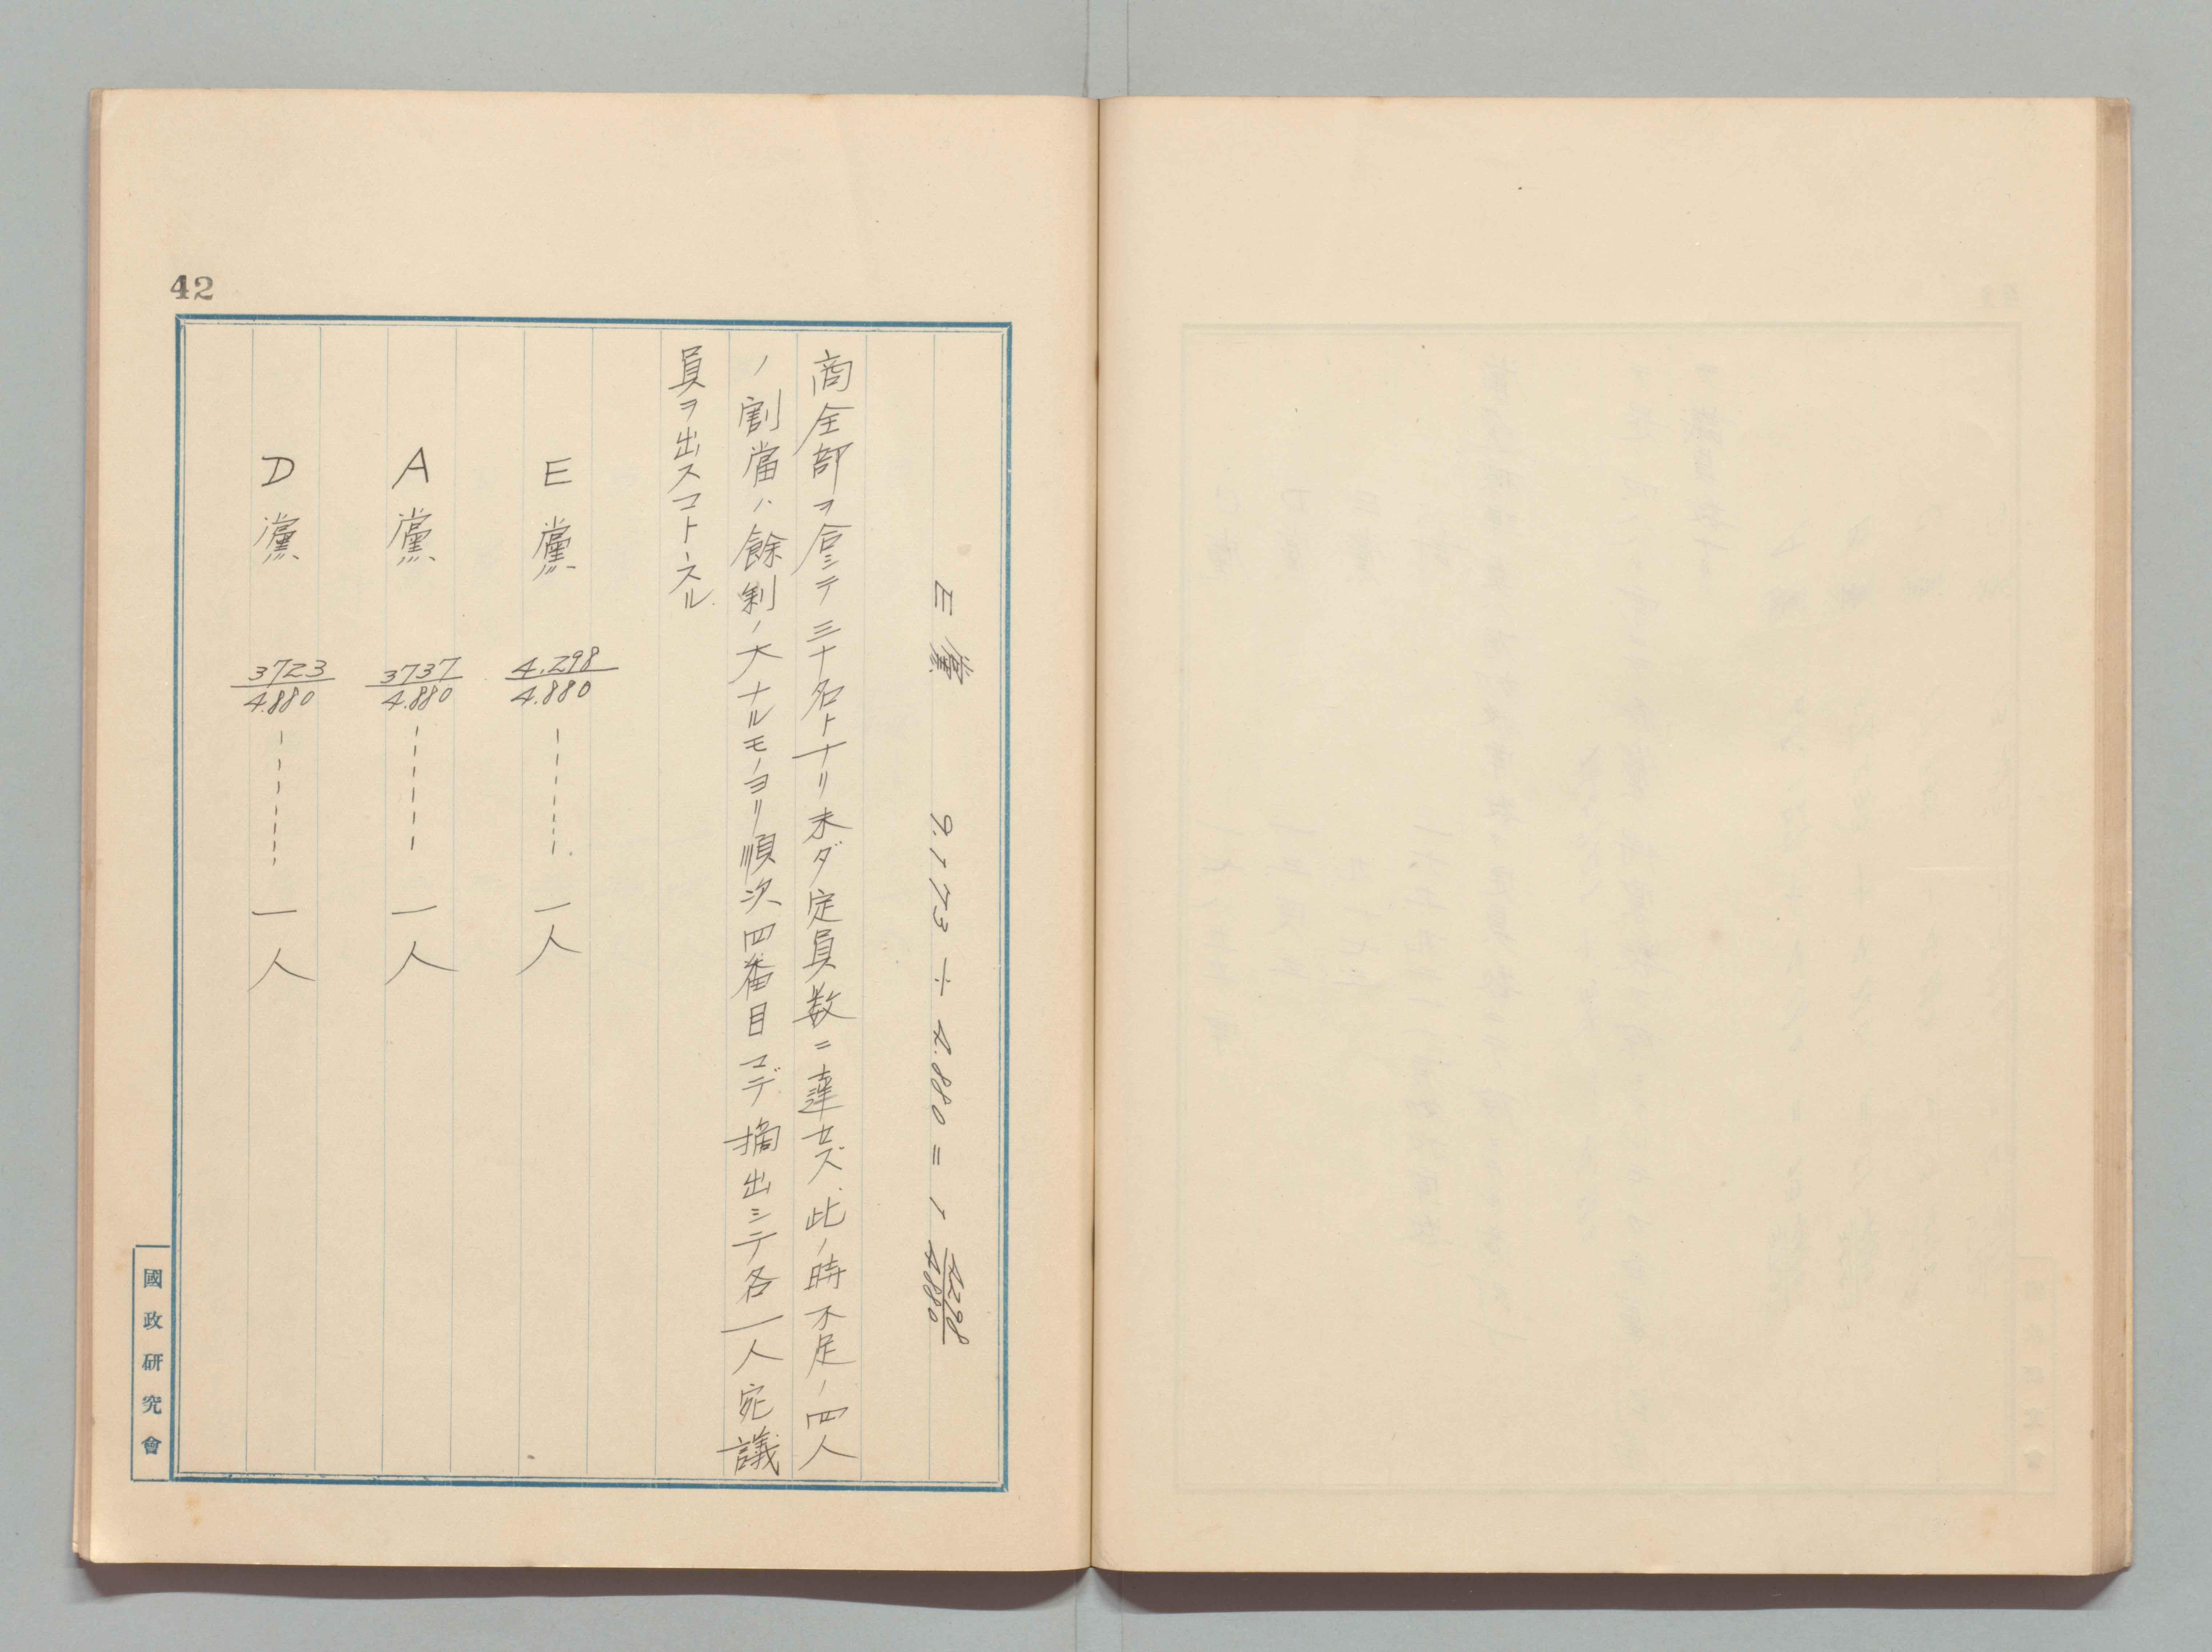 42
E黨 9.173÷4.880=1 4298/4880
商全部ヲ合シテ三十名トナリ未ダ定員数ニ達セズ此ノ時不足ノ四人
ノ割當ハ餘剰ノ大ナルモノヨリ順次四番目マデ摘出シテ各一人宛議
員ヲ出スコトヽスル
E黨 4.298/4.880 ------ 一人
A黨 3737/4.880 ------ 一人
D黨 3723/4.880 ------ 一人
國政研究會